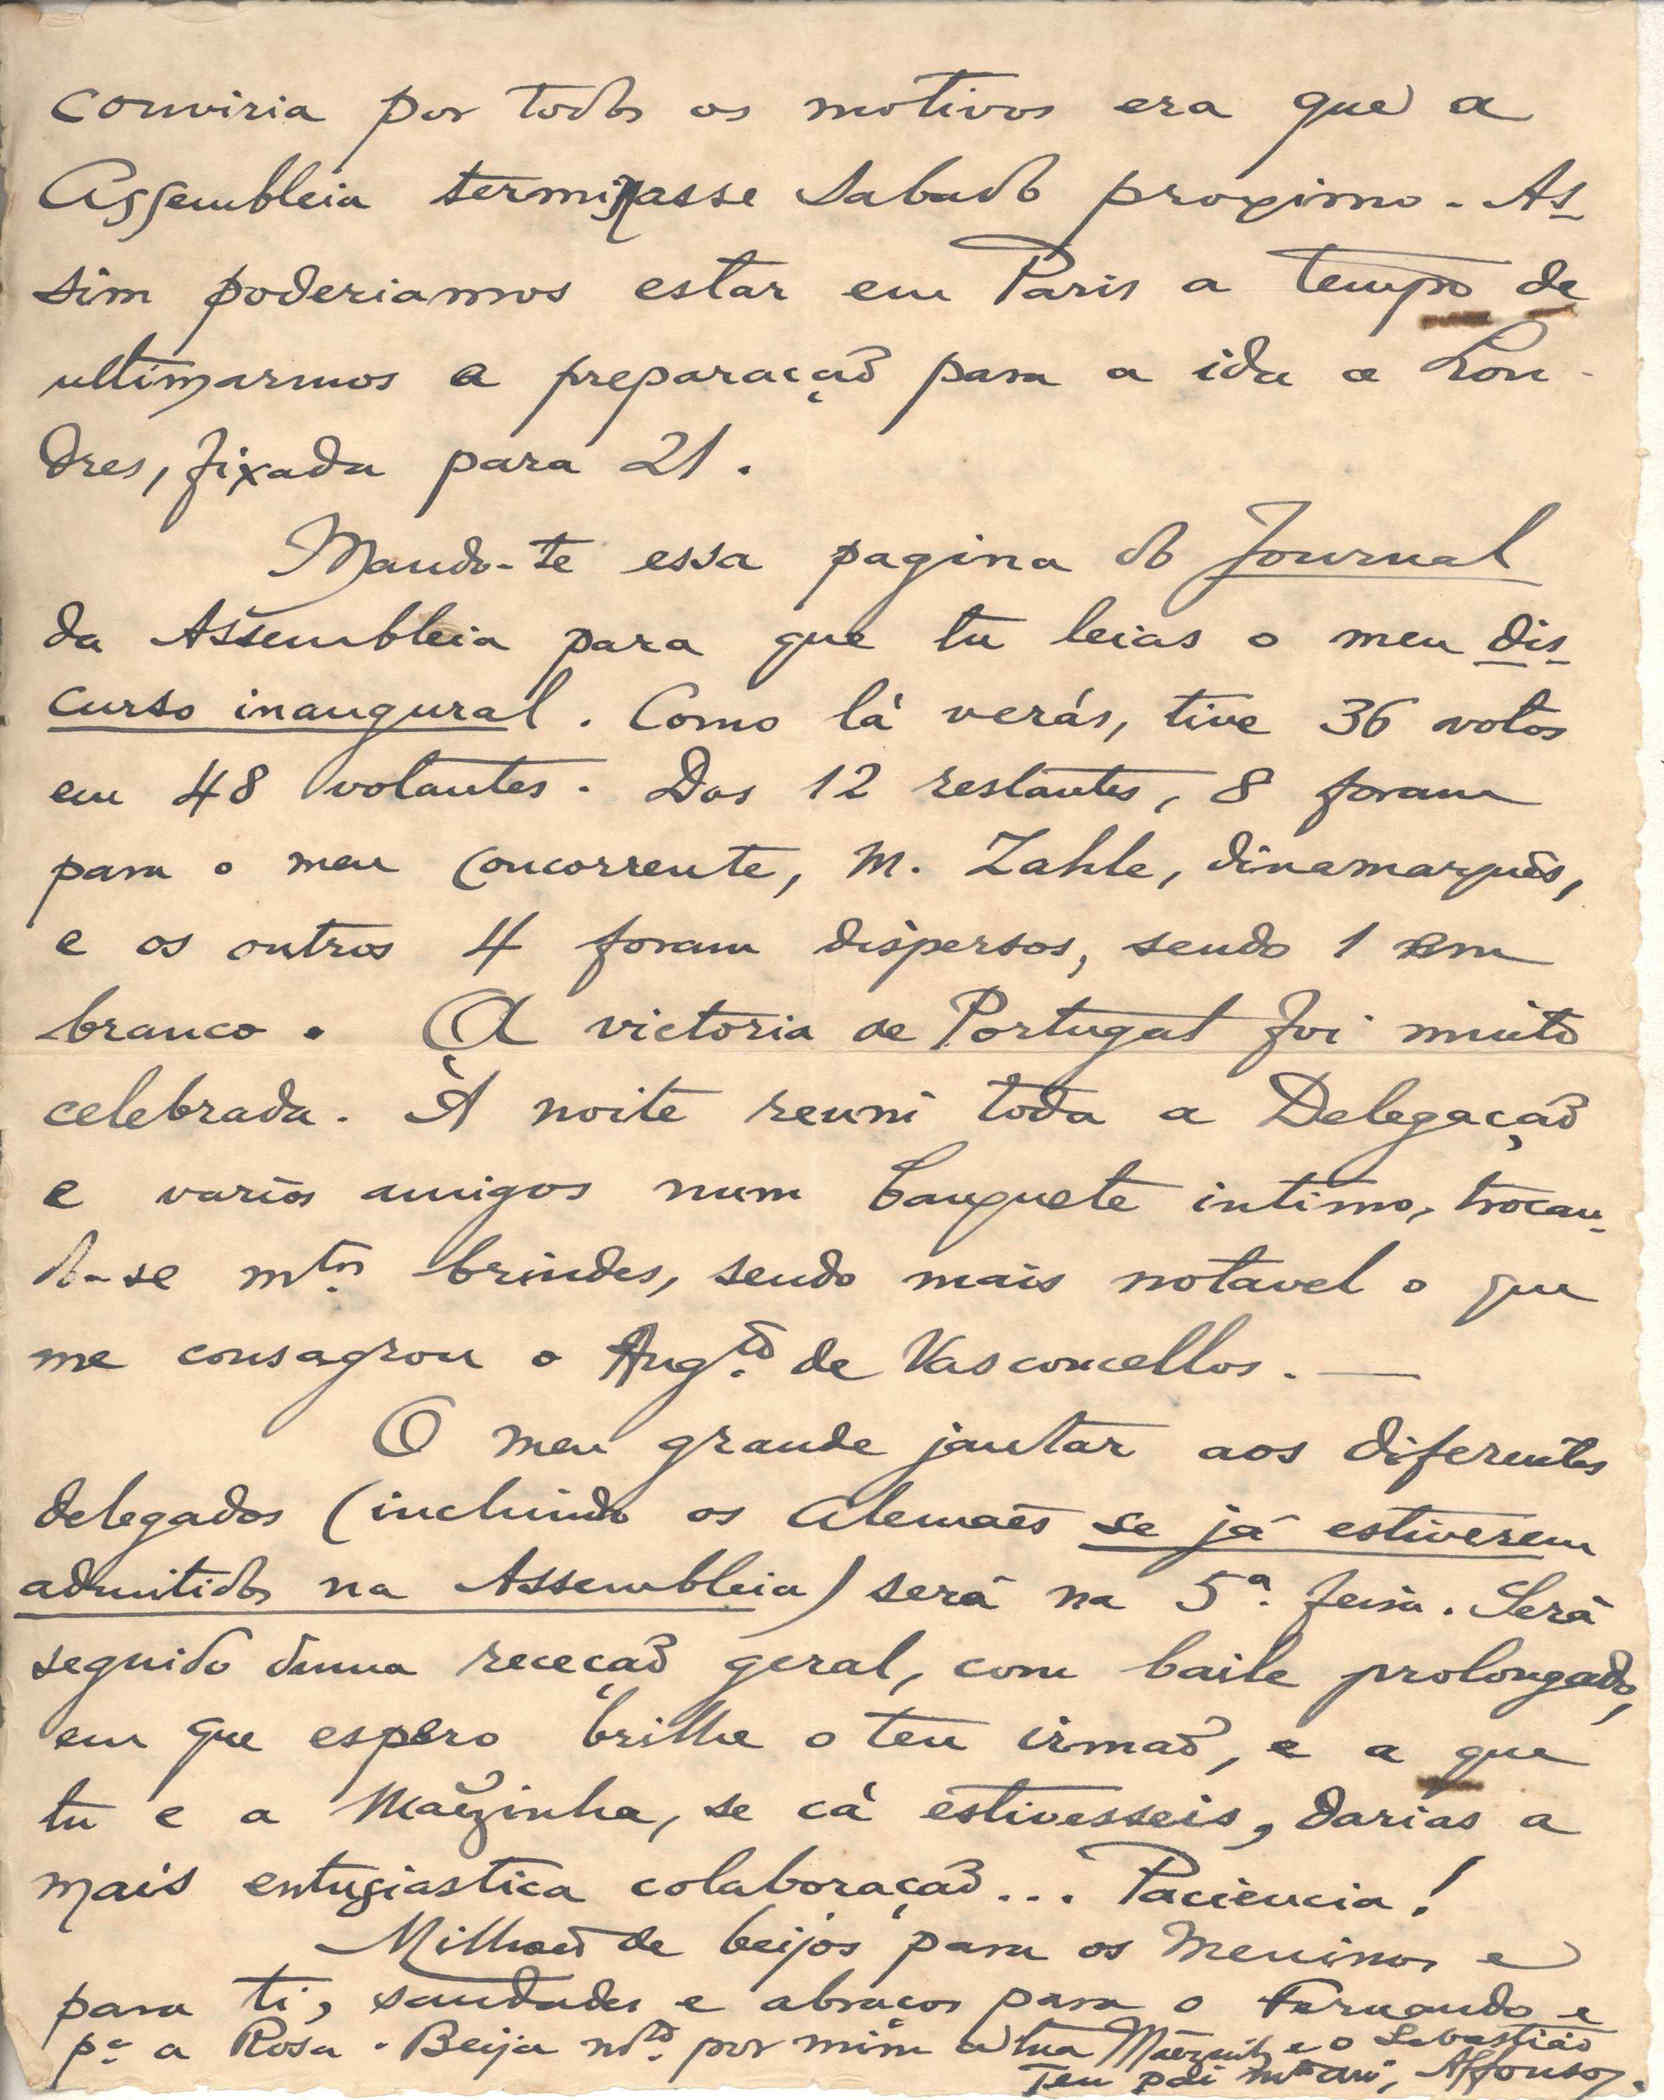 conviria por todos os motivos era que a
Assembleia terminasse Sabado proximo. As-
sim poderiamos estar em Paris a tempo de
ultimarmos a preparação para a ida a Lon-
dres, fixada para 21.
Mando-te essa pagina do Journal
da Assembleia para que tu leias o meu dis-
curso inaugural. Como lá verás, tive 36 votos
em 48 votantes. Dos 12 restantes, 8 foram
para o meu concorrente, M. Zahle, dinamarquês,
e os outros 4 foram dispersos, sendo 1 em
branco. A victoria de Portugal foi muito
celebrada. À noite reuni toda a Delegação
e varios amigos num banquete intimo, trocan-
do-se mtos. brindes, sendo mais notavel o que
me consagrou o Augto. de Vasconcellos. —
O meu grande jantar aos diferentes
delegados (incluindo os Alemães se já estiverem
admitidos na Assembleia) será na 5ª. feira. Será
seguido duma receção geral, com baile prolongado,
em que espero brilhe o teu irmão, e a que
tu e a Mãezinha, se cá estivesseis, darias a
mais entusiastica colaboração... Paciencia!
Milhões de beijos para os Meninos e
para ti, saudades e abraços para o Fernando e
pª. a Rosa. Beija mto. por mim a tua Mãezinha e o Sebastião
Teu pai mto. am., Affonso.